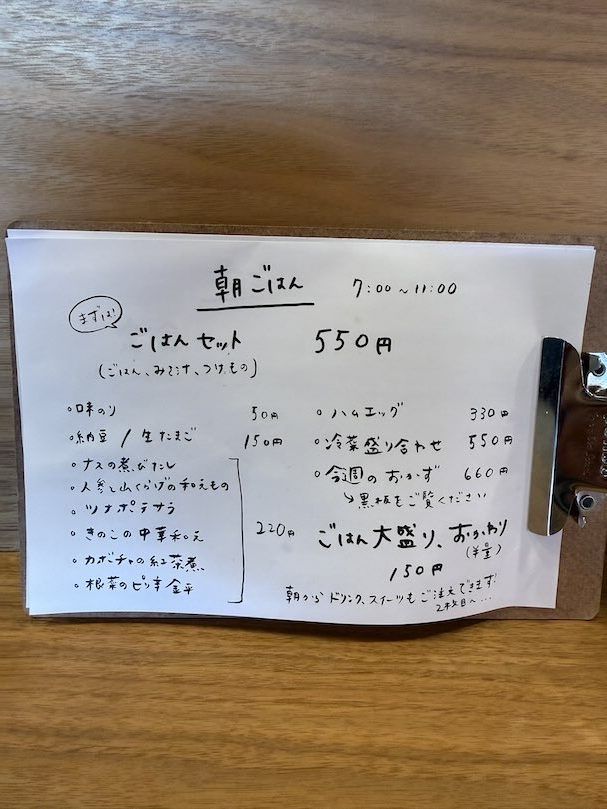 朝ごはん 7:00～11:00
まずは!
ごはんセット 550円
(ごはん、みそ汁、つけもの)
・味のり 50円
・納豆 / 生たまご 150円
・ナスの煮びたし
・人参と山くらげの和えもの
・ツナポテサラ
・きのこの中華和え
・カボチャの紅茶煮
・根菜のピリ辛金平
220円
・ハムエッグ 330円
・冷菜盛り合わせ 550円
・今週のおかず 660円
↳黒板をご覧ください
ごはん大盛り、おかわり
(半量)
150円
朝からドリンク、スイーツもご注文できます!
2枚目へ...